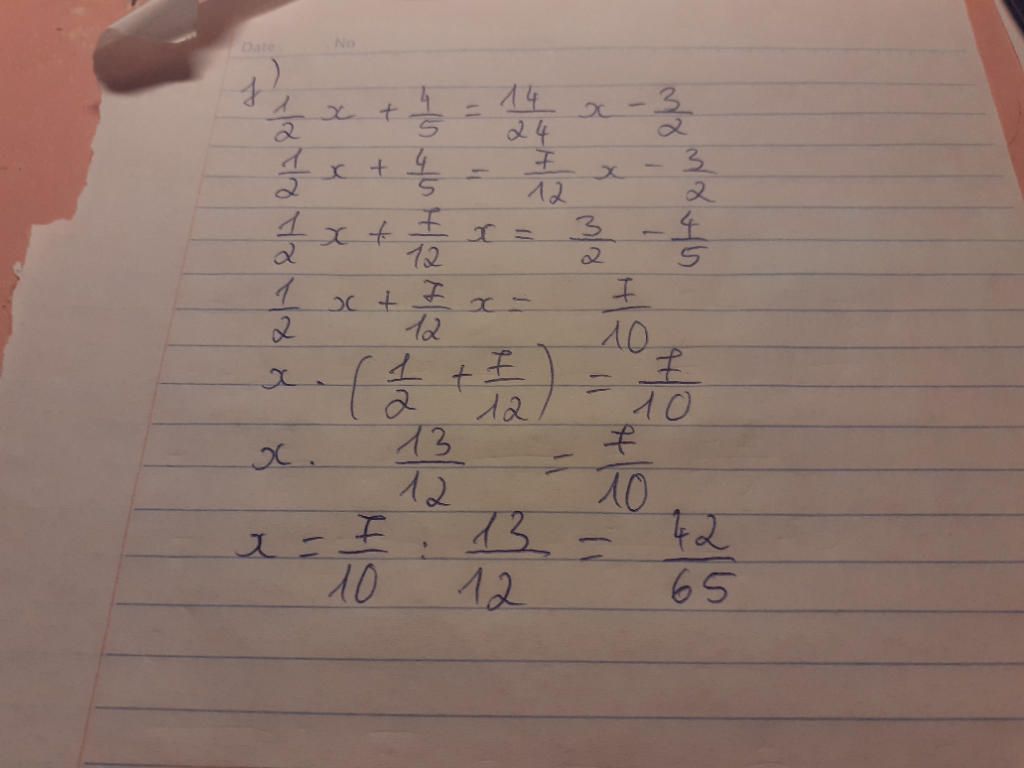 Date No
f)
1/2 x + 4/5 = 14/24 x - 3/2
1/2 x + 4/5 = 7/12 x - 3/2
1/2 x + 7/12 x = 3/2 - 4/5
1/2 x + 7/12 x = 7/10
x · (1/2 + 7/12) = 7/10
x · 13/12 = 7/10
x = 7/10 : 13/12 = 42/65